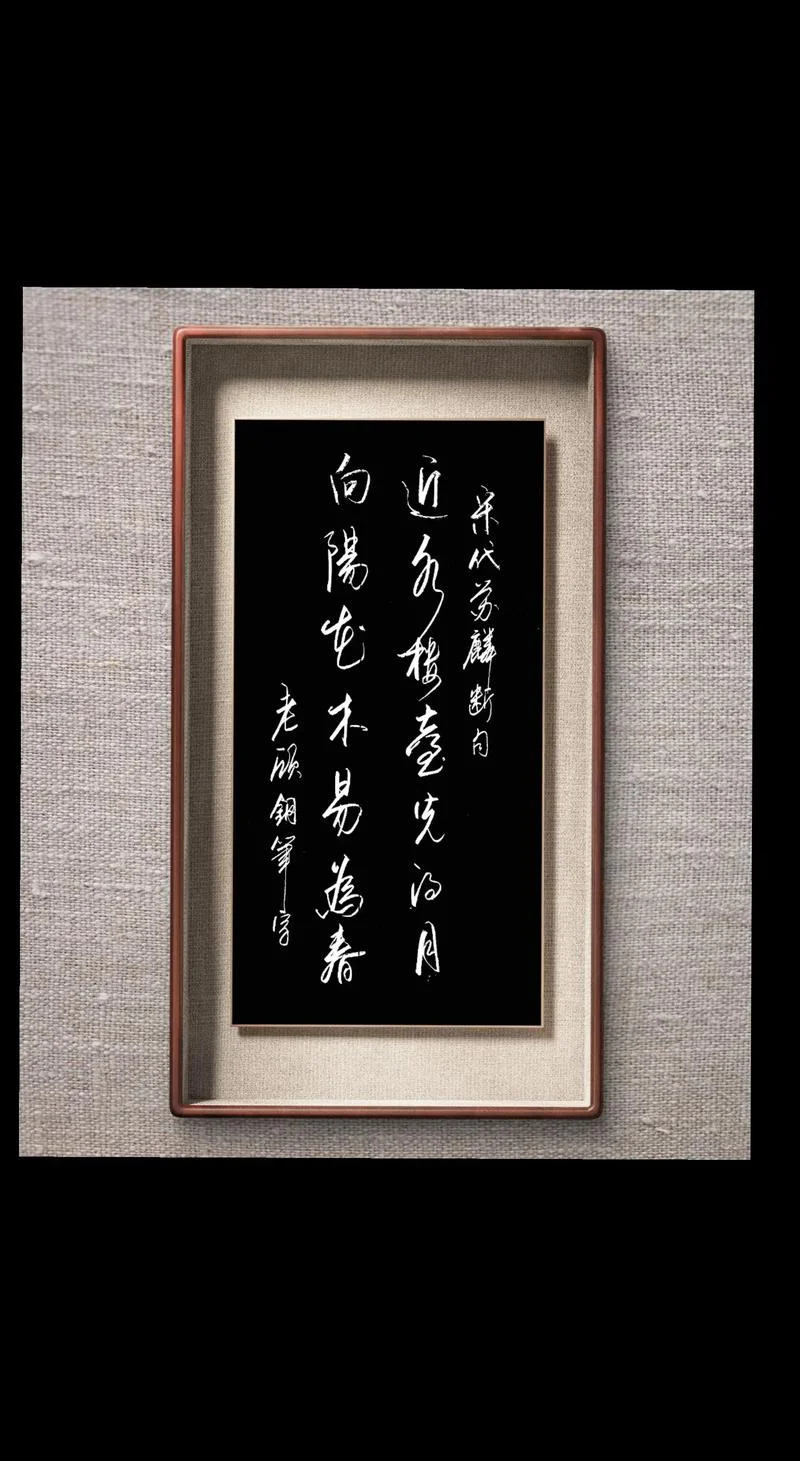 宋代苏麟断句
近水楼臺先得月
向陽花木易為春
老顾钢筆字